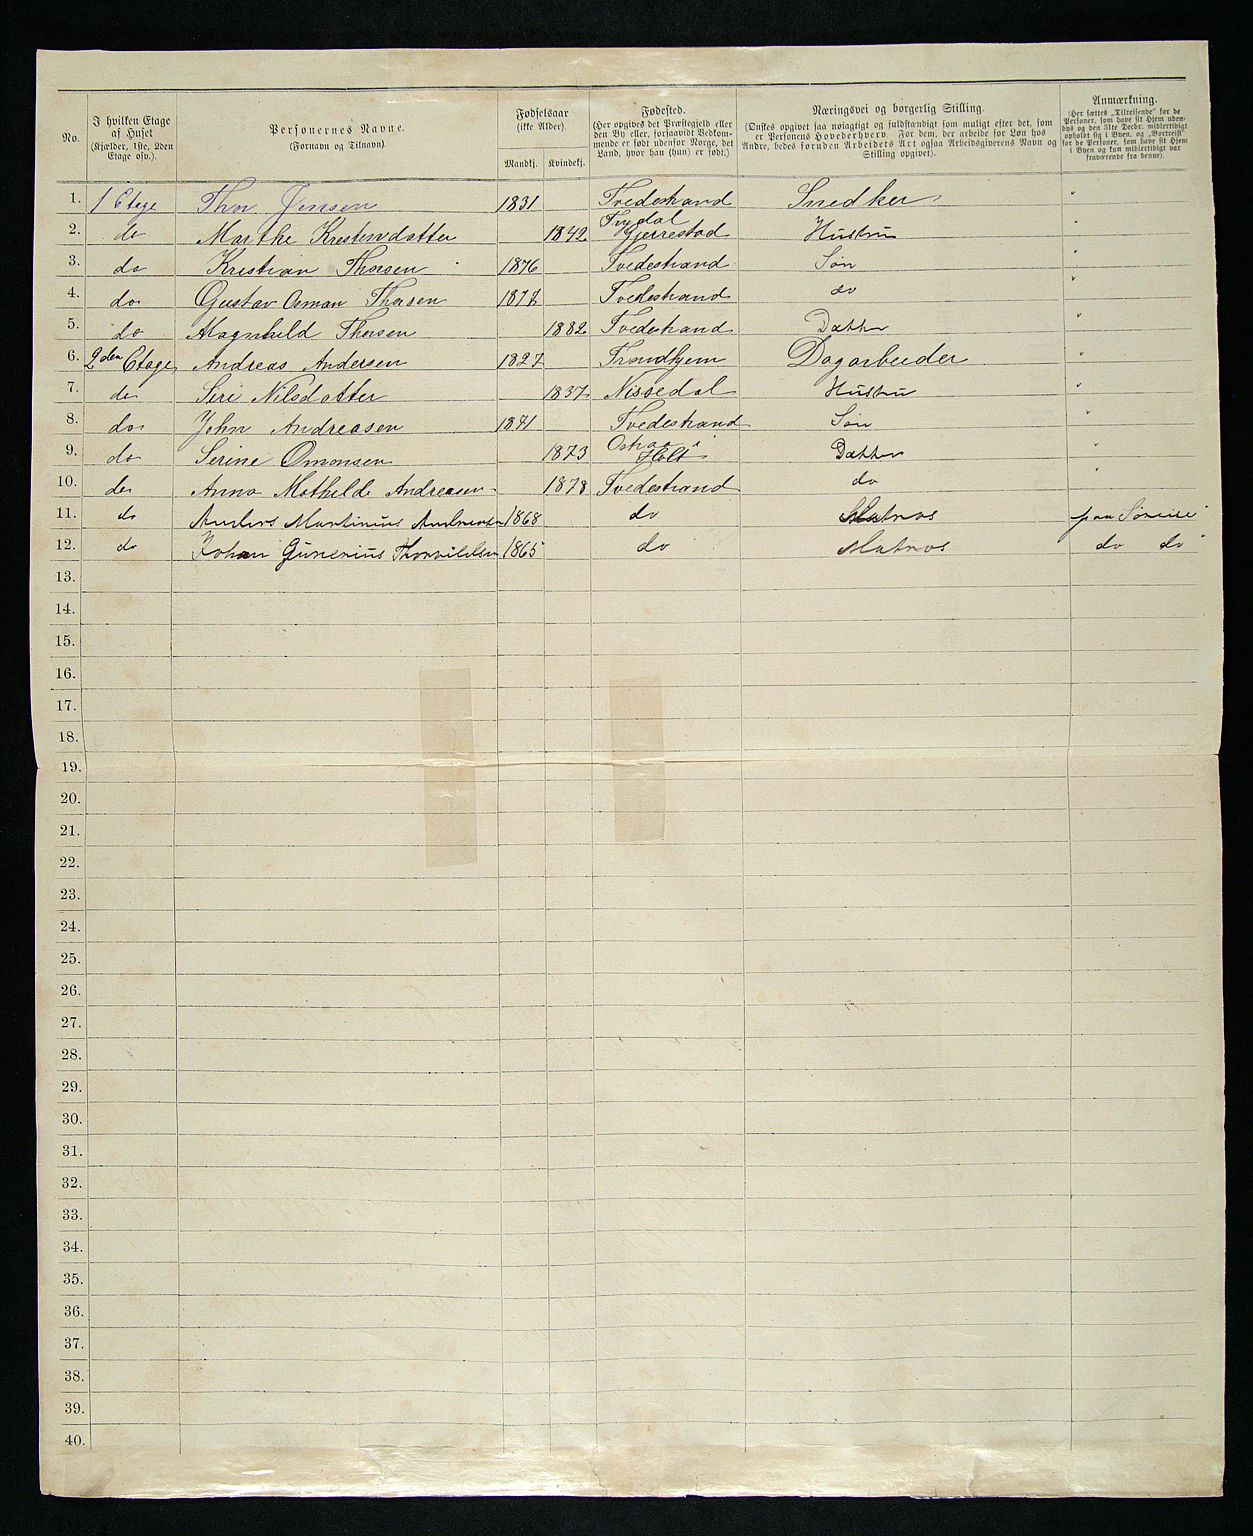 No.
I hvilken Etage af Huset (Kjælder, 1ste, 2den Etage osv.).
Personernes Navne.
(Fornavn og Tilnavn).
Fødselsaar
(ikke Alder).
Mandkj. Kvindekj.
Fødested.
(Her opgives det Præstegjeld eller
den By eller, forsaavidt Bedkom-
mende er født udenfor Norge, det
Land, hvor han (hun) er født.)
Næringsvei og borgerlig Stilling.
(Ønskes opgivet saa nøiagtigt og fuldstændigt som muligt efter det, som
er Personens Hovederhverv. For dem, der arbeide for Løn hos
Andre, bedes foruden Arbeidets Art ogsaa Arbeidsgiverens Navn og
Stilling opgivet).
Anmærkning.
(Her sættes „Tilreisende" for de
Personer, som have sit Hjem uden-
bys og den 31te Decbr. midlertidigt
opholdt sig i Byen, og „Bortreist"
for de Personer, som have sit Hjem
i Byen og kun midlertidigt var
fraværende fra denne).
1. 1 Etage Thor Jensen 1831 Tvedestrand Snedker "
2. do Marthe Kristensdatter 1842 Gjerrestad Hustru "
3. do Kristian Thorsen 1876 Tvedestrand Søn "
4. do Gustav Osman Thorsen 1877 Tvedestrand do "
5. do Magnhild Thorsen 1882 Tvedestrand Datter "
6. 2den Etage Andreas Andersen 1827 Trondhjem Dagarbeider "
7. do Siri Nilsdatter 1837 Nissedal Hustru "
8. do John Andreasen 1871 Tvedestrand Søn "
9. do Serine Omonsen 1873 i Holt Datter "
10. do Anna Mathilde Andreasen 1878 Tvedestrand do "
11. do Anders Martinius Andreasen 1868 do Matros paa Søreise
12. do Johan Gunerius Thorvildsen 1865 do Matros do do
13.
14.
15.
16.
17.
18.
19.
20.
21.
22.
23.
24.
25.
26.
27.
28.
29.
30.
31.
32.
33.
34.
35.
36.
37.
38.
39.
40.